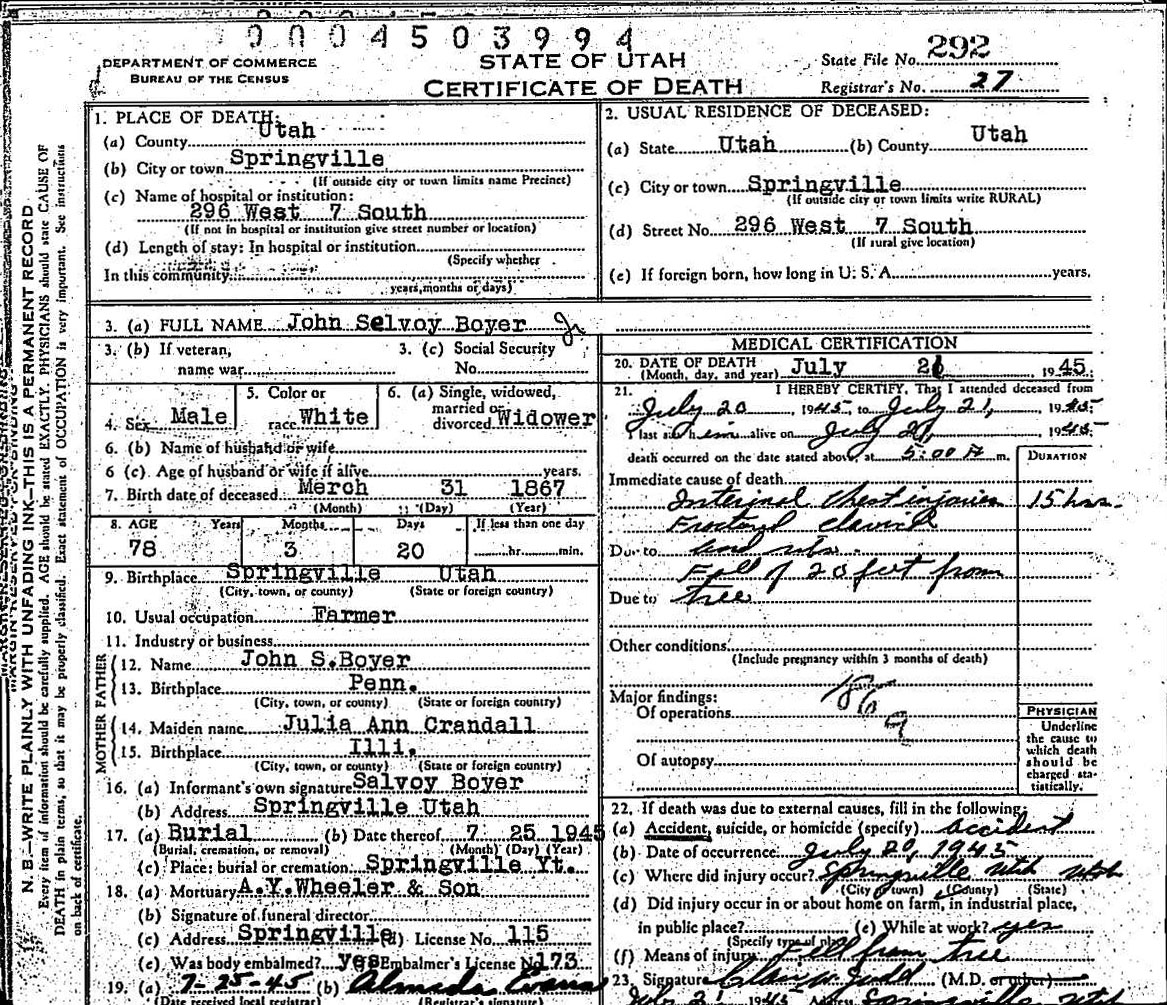 0004503994
DEPARTMENT OF COMMERCE
BUREAU OF THE CENSUS
STATE OF UTAH
CERTIFICATE OF DEATH
State File No. 292
Registrar's No. 27
N. B.—WRITE PLAINLY WITH UNFADING INK—THIS IS A PERMANENT RECORD
Every item of information should be carefully supplied. AGE should be stated EXACTLY. PHYSICIANS should state CAUSE OF
DEATH in plain terms, so that it may be properly classified. Exact statement of OCCUPATION is very important. See instructions
on back of certificate.
1. PLACE OF DEATH:
(a) County Utah
(b) City or town Springville
(If outside city or town limits name Precinct)
(c) Name of hospital or institution:
296 West 7 South
(If not in hospital or institution give street number or location)
(d) Length of stay: In hospital or institution
(Specify whether
In this community
years, months or days)
2. USUAL RESIDENCE OF DECEASED:
(a) State Utah (b) County Utah
(c) City or town Springville
(If outside city or town limits write RURAL)
(d) Street No. 296 West 7 South
(If rural give location)
(e) If foreign born, how long in U. S. A. years.
3. (a) FULL NAME John Selvoy Boyer Jr
3. (b) If veteran,
name war
3. (c) Social Security
No.
4. Sex Male
5. Color or
race White
6. (a) Single, widowed,
married or
divorced Widower
6. (b) Name of husband or wife
6 (c). Age of husband or wife if alive years.
7. Birth date of deceased March 31 1867
(Month) (Day) (Year)
8. AGE Years Months Days If less than one day
78 3 20 hr. min.
9. Birthplace Springville Utah
(City, town, or county) (State or foreign country)
10. Usual occupation Farmer
11. Industry or business
FATHER
12. Name John S.Boyer
13. Birthplace Penn.
(City, town, or county) (State or foreign country)
MOTHER
14. Maiden name Julia Ann Crandall
15. Birthplace Illi.
(City, town, or county) (State or foreign country)
16. (a) Informant's own signature Salvoy Boyer
(b) Address Springville Utah
17. (a) Burial (b) Date thereof 7 25 1945
(Burial, cremation, or removal) (Month) (Day) (Year)
(c) Place: burial or cremation Springville Yt.
18. (a) Mortuary A.Y.Wheeler & Son
(b) Signature of funeral director
(c) Address Springville (d) License No. 115
(e) Was body embalmed? yes Embalmer's License No 173
19. (a) 7-25-45 (b) Almeda Evans
(Date received local registrar) (Registrar's signature)
MEDICAL CERTIFICATION
20. DATE OF DEATH July 21, 1945
(Month, day, and year)
21. I HEREBY CERTIFY, That I attended deceased from
July 20, 1945, to July 21, 1945
I last saw him alive on July 21, 1945
death occurred on the date stated above, at 5:00 A m.
DURATION
Immediate cause of death
Internal chest injuries 15 hrs.
Fractured clavicle
Due to and ribs
Fall of 20 feet from
Due to tree
Other conditions
(Include pregnancy within 3 months of death)
Major findings:
Of operations
Of autopsy
186
a
PHYSICIAN
Underline
the cause to
which death
should be
charged sta-
tistically.
22. If death was due to external causes, fill in the following:
(a) Accident, suicide, or homicide (specify) accident
(b) Date of occurrence July 20, 1945
(c) Where did injury occur? Springville Utah Utah
(City or town) (County) (State)
(d) Did injury occur in or about home on farm, in industrial place,
in public place? (e) While at work? yes
(Specify type of place)
(f) Means of injury Fell from tree
23. Signature Judd (M.D. or other)
July 21 1945 Address Springville Utah